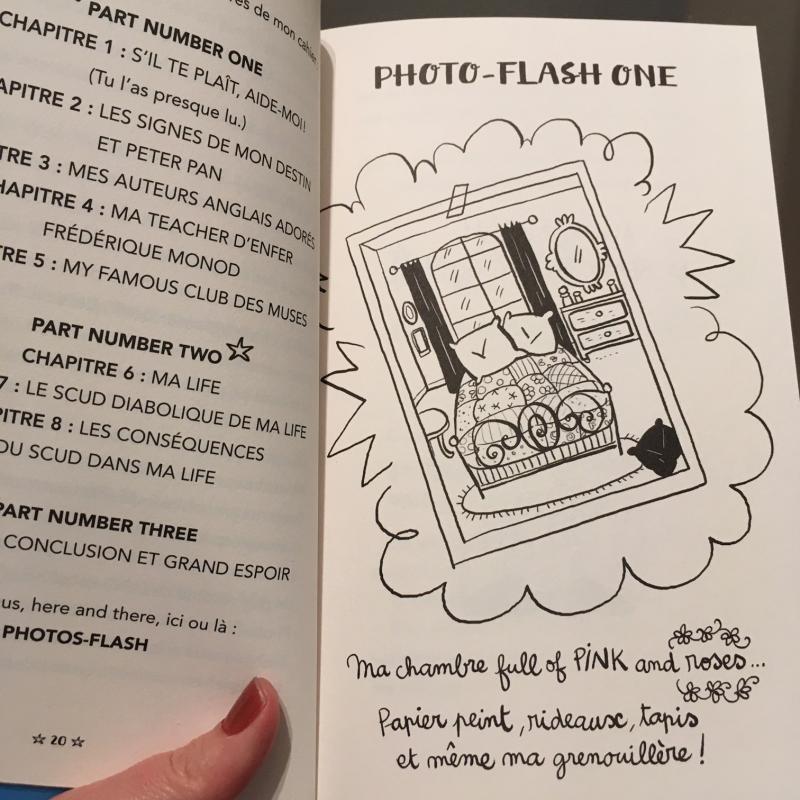 de mon cahier
PART NUMBER ONE
CHAPITRE 1 : S'IL TE PLAÎT, AIDE-MOI !
(Tu l'as presque lu.)
2 : LES SIGNES DE MON DESTIN
ET PETER PAN
3 : MES AUTEURS ANGLAIS ADORÉS
4 : MA TEACHER D'ENFER
FRÉDÉRIQUE MONOD
5 : MY FAMOUS CLUB DES MUSES
PART NUMBER TWO
CHAPITRE 6 : MA LIFE
7 : LE SCUD DIABOLIQUE DE MA LIFE
8 : LES CONSÉQUENCES
DU SCUD DANS MA LIFE
PART NUMBER THREE
CONCLUSION ET GRAND ESPOIR
here and there, ici ou là :
PHOTOS-FLASH
20
PHOTO-FLASH ONE
Ma chambre full of PINK and roses...
Papier peint, rideaux, tapis
et même ma grenouillère !